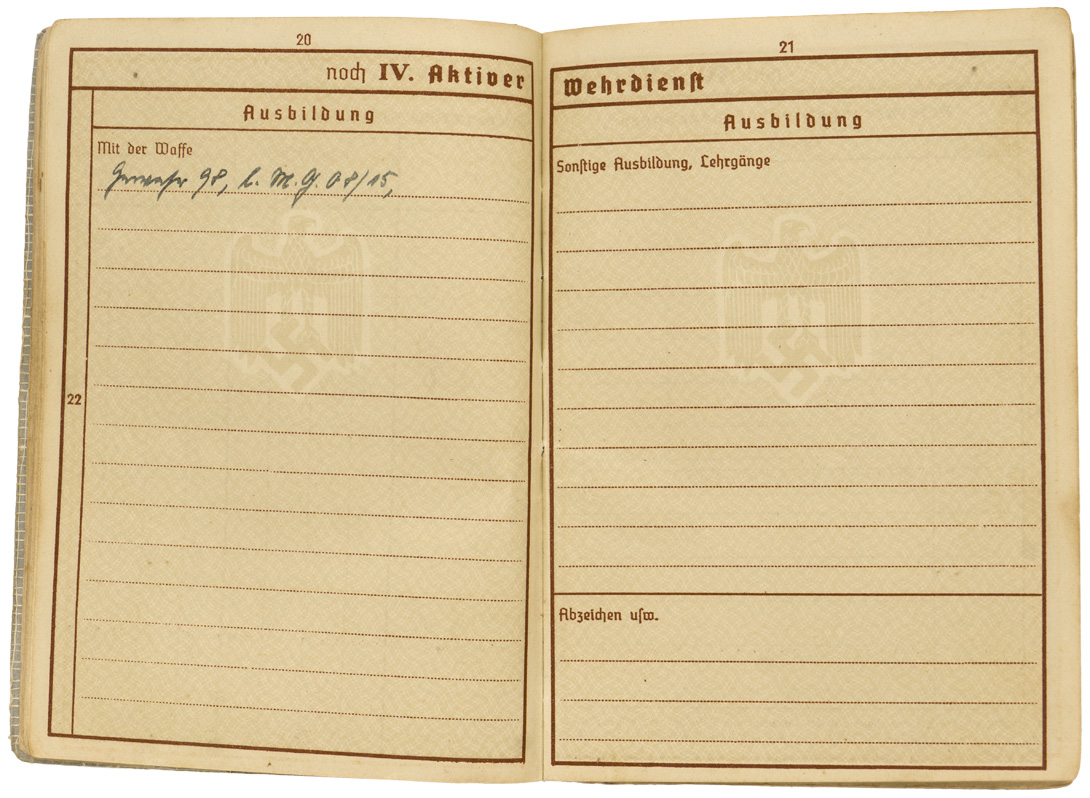 20
noch IV. Aktiver
Ausbildung
Mit der Waffe
Gewehr 98, l. M.G. 08/15,
22
21
Wehrdienst
Ausbildung
Sonstige Ausbildung, Lehrgänge
Abzeichen usw.